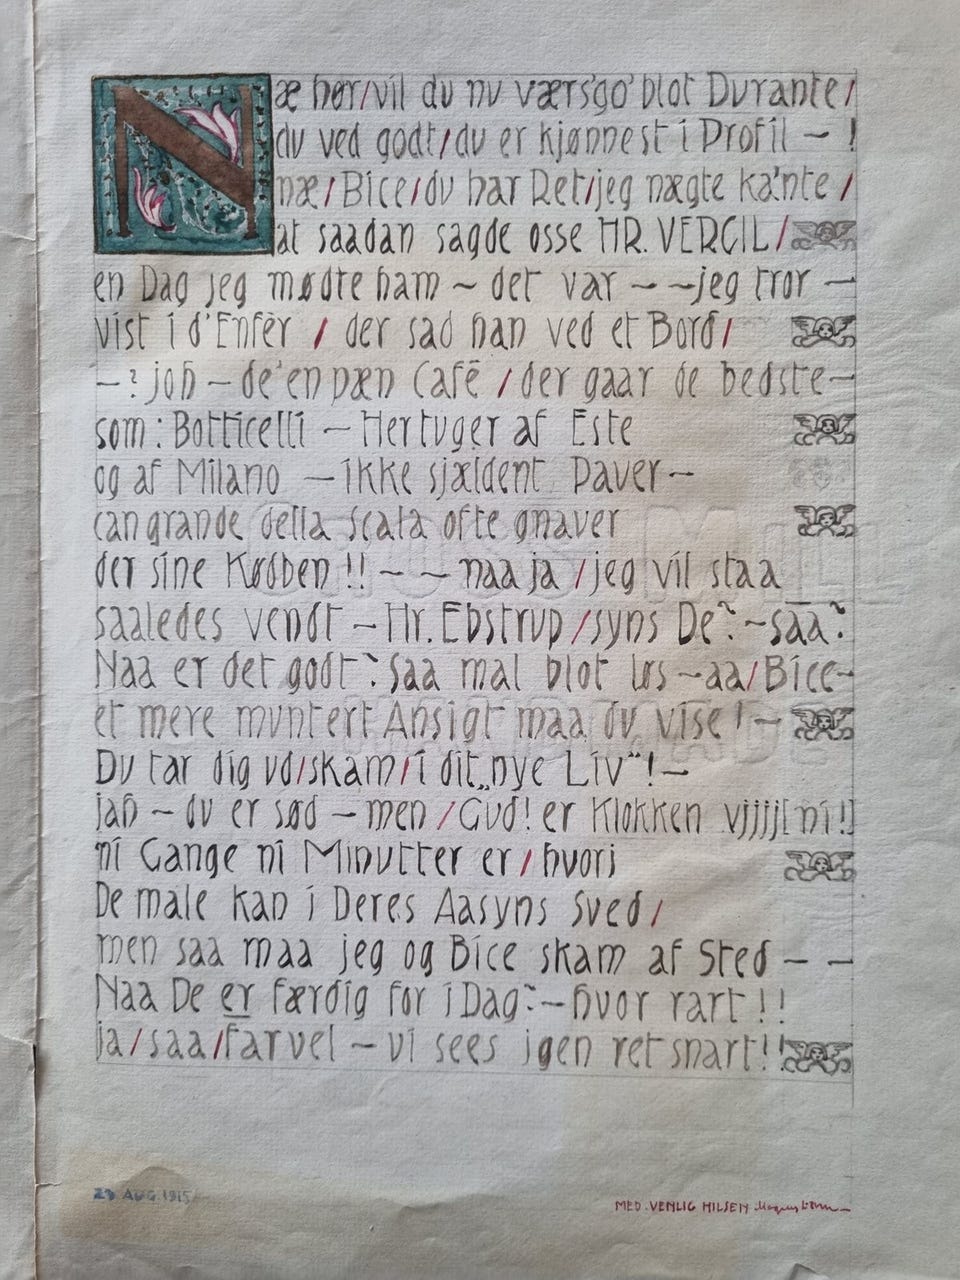 Næ hør/vil du nu værs'go' blot Durante/
du ved godt/du er kjønnest i Profil ~ !
næ/Bice/du har Ret/jeg nægte ka'nte /
at saadan sagde osse HR. VERGIL/
en Dag jeg mødte ham ~ det var ~ ~jeg tror —
vist i d'Enfèr / der sad han ved et Bord/
—? joh — de'en pæn Café /der gaar de bedste—
som: Botticelli — Hertuger af Este
og af Milano — ikke sjældent Paver—
can grande della Scala ofte gnaver
der sine Kødben!! — — naa ja /jeg vil staa
saaledes vendt — Hr. Ebstrup/syns De? —saa?
Naa er det godt? Saa mal blot løs —aa/Bice—
et mere muntert Ansigt maa du vise! —
Du tar dig ud/skam/i dit „nye Liv“! —
jah — du er sød — men /Gud! er Klokken vjjjj[ni!]
ni Gange ni Minutter er/hvori
De male kan i Deres Aasyns Sved/
men saa maa jeg og Bice skam af Sted — —
Naa De er færdig for i Dag? — hvor rart!!
ja/saa/farvel — vi sees igen ret snart!!
AUG. 1915
MED VENLIG HILSEN